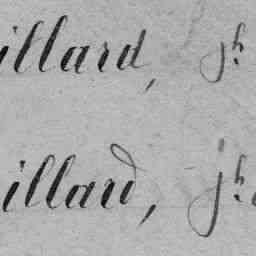 illard, jh.
illard, jh.